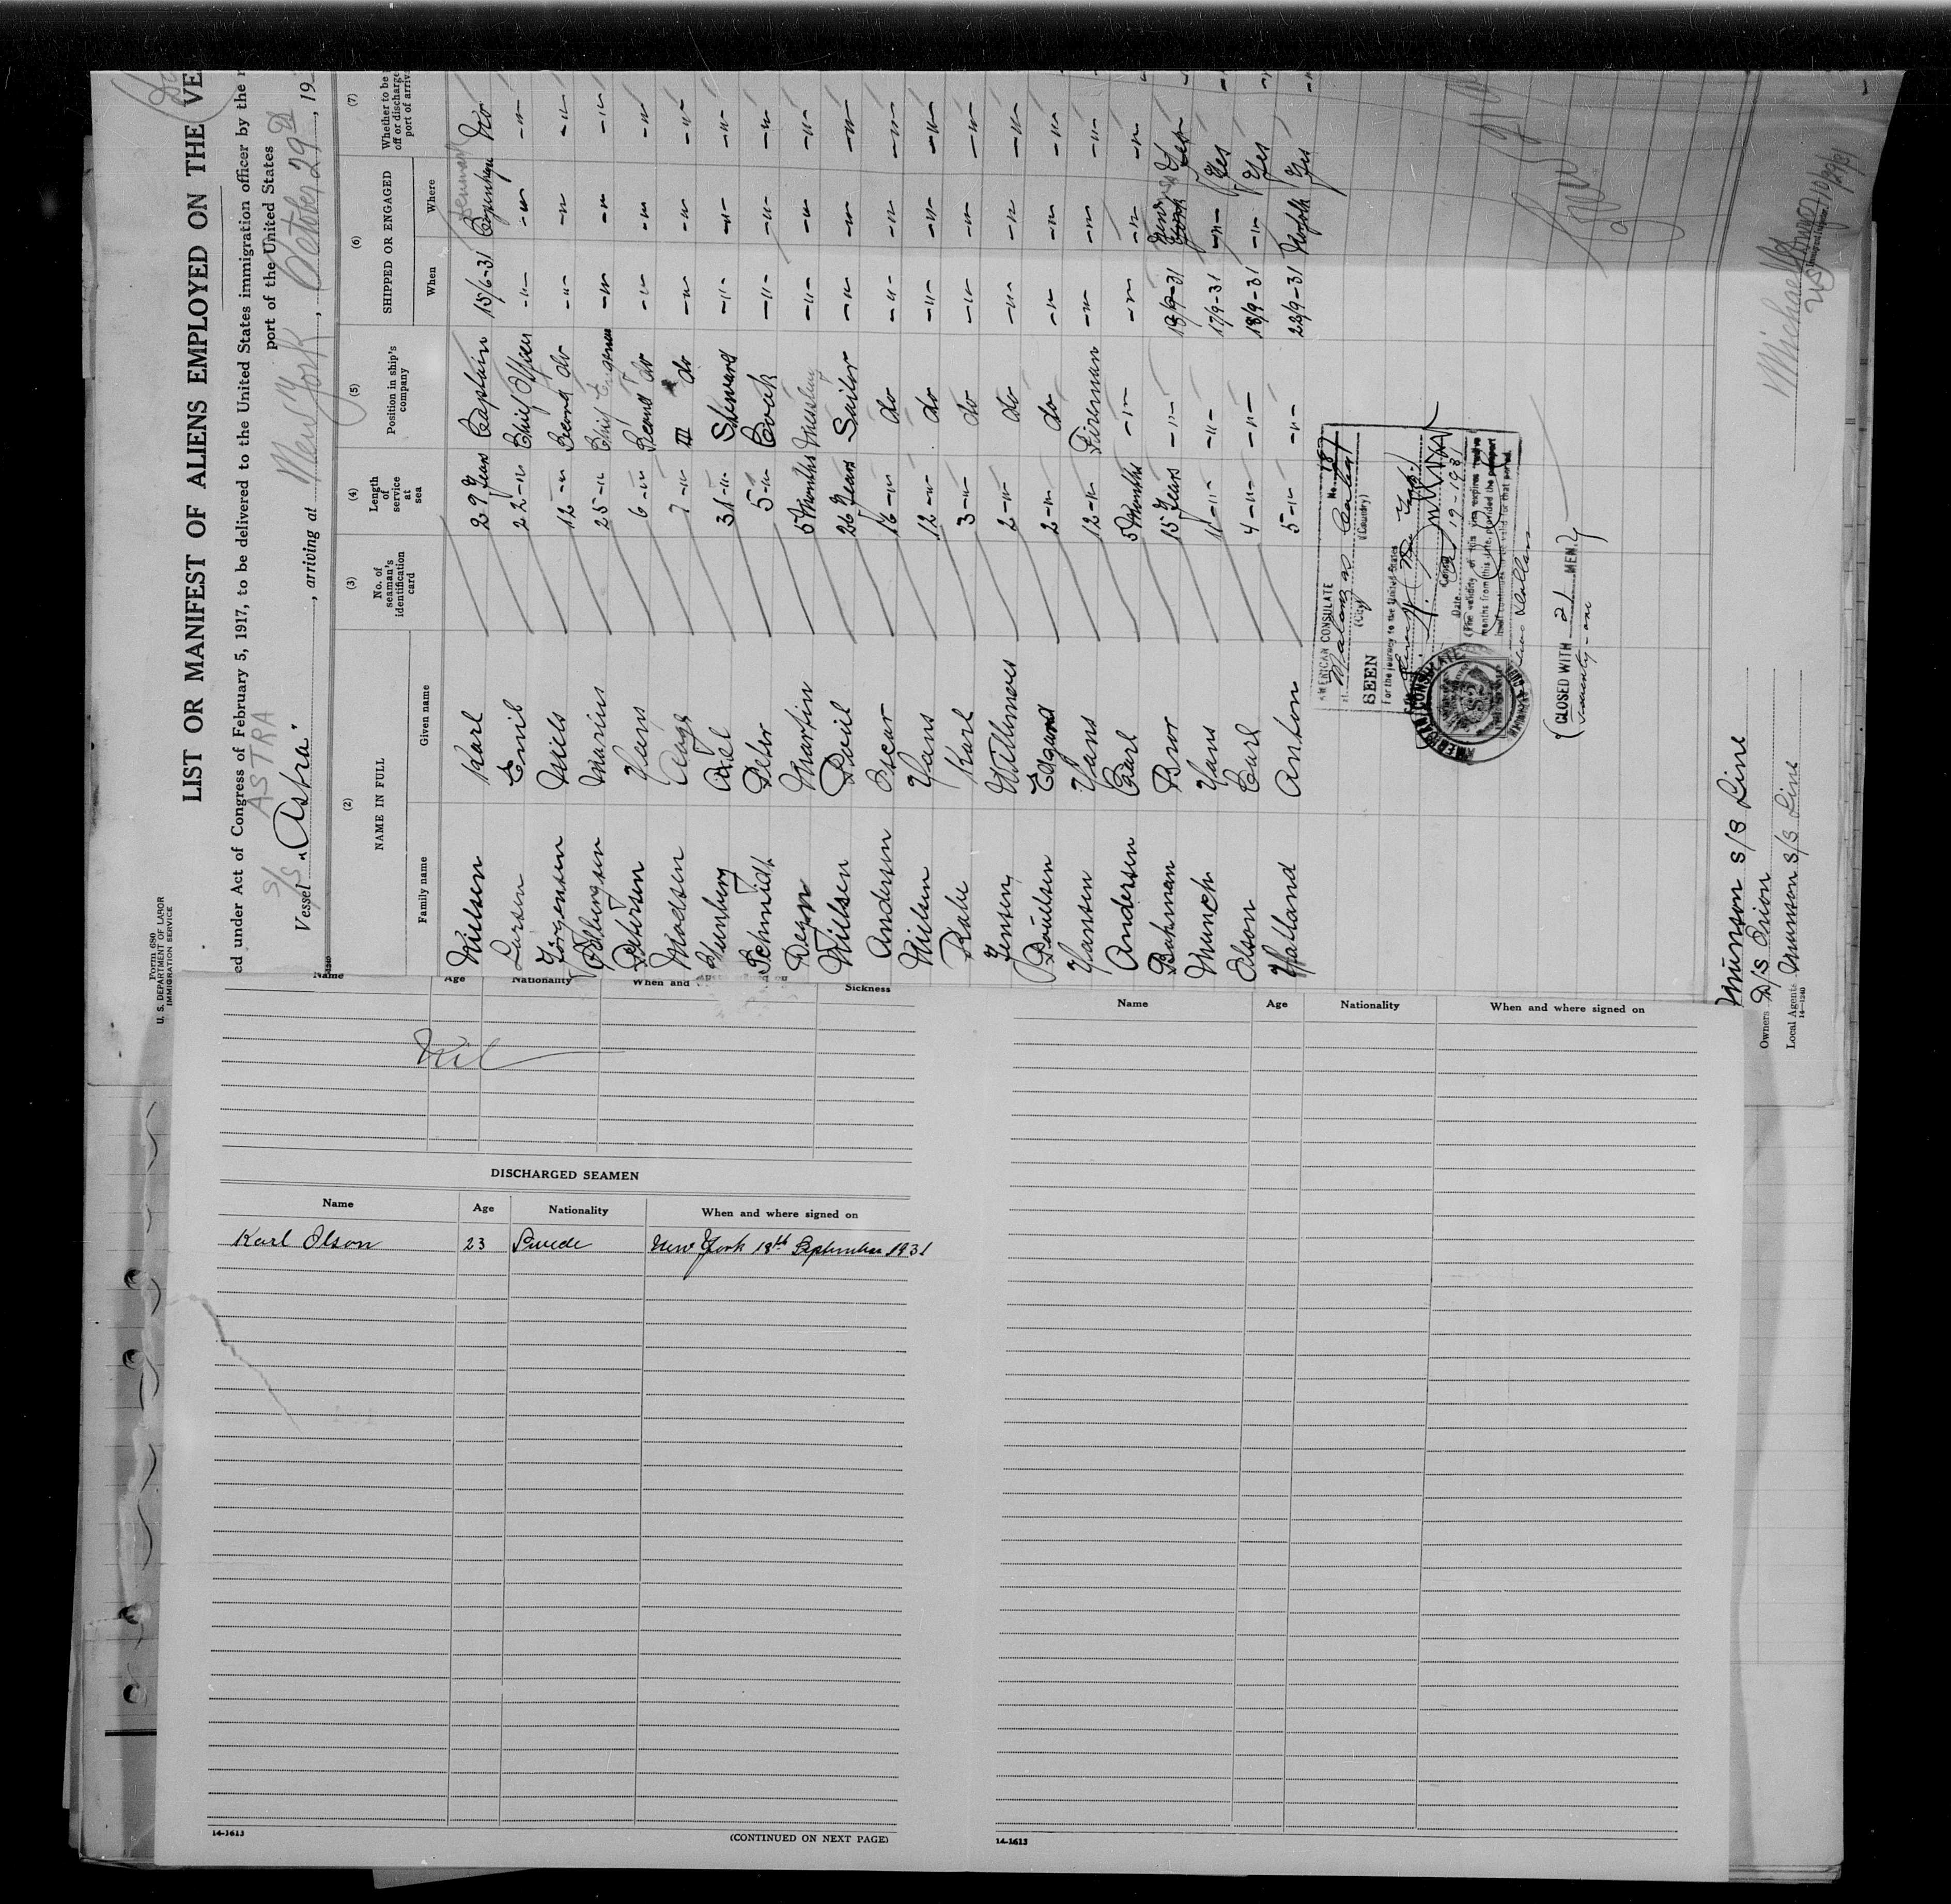 Form 680
U. S. DEPARTMENT OF LABOR
IMMIGRATION SERVICE
LIST OR MANIFEST OF ALIENS EMPLOYED ON THE VE
ed under Act of Congress of February 5, 1917, to be delivered to the United States immigration officer by the r
port of the United States
S/S ASTRA
Vessel „Astra", arriving at New York, October 29th, 19
(2) (3) (4) (5) (6) (7)
NAME IN FULL
Family name Given name
No. of seaman's identification card
Length of service at sea
Position in ship's company
SHIPPED OR ENGAGED
When Where
Whether to be off or discharge port of arriv
Denmark
Nielsen Karl 29 Years Captain 15/6-31 Copenhagen No
Larsen Emil 22 -"- Chief Officer -"- -"- -"-
Jörgensen Niels 12 -"- Second do -"- -"- -"-
Marius 25 -"- Chief Engineer -"- -"- -"-
Petersen Hans 6 -"- Second do -"- -"- -"-
Madsen Aage 7 -"- III do -"- -"- -"-
Axel 31 -"- Steward -"- -"- -"-
Schmidt Peter 5 -"- Cook -"- -"- -"-
Martin 5 Months -"- -"- -"-
Nielsen Povil 26 Years Sailor -"- -"- -"-
Andersen Oscar 16 -"- do -"- -"- -"-
Nielsen Hans 12 -"- do -"- -"- -"-
Rahe Karl 3 -"- do -"- -"- -"-
Jensen 2 -"- do -"- -"- -"-
Poulsen Edgard 2 -"- do -"- -"- -"-
Hansen Hans 12 -"- Fireman -"- -"- -"-
Andersen Carl 5 Months -"- -"- -"- -"-
Bohman Bror 15 Years -"- 18/9-31 New York Yes
Munch Hans 1 -"- -"- 17/9-31 -"- Yes
Olson Carl 4 -"- -"- 18/9-31 -"- Yes
Halland Anton 5 -"- -"- 23/9-31 Norfolk Yes
AMERICAN CONSULATE No. 187
at Matanzas Cuba
(City) (Country)
SEEN
For the journey to the United States
Date 19-1931
(The validity of this expires twelve
months from this date, provided the passport
continues to be valid for that period.
AMERICAN CONSULATE
(CLOSED WITH 21 MEN.)
Twenty-one
Munson S/S Line
Owners D/S Orion
Local Agents Munson S/S Line
14-1240
Michael
10/29/31
Name Age Nationality When and Sickness
Nil
DISCHARGED SEAMEN
Name Age Nationality When and where signed on
Karl Olson 23 Swede New York 18th September 1931
14-1613 (CONTINUED ON NEXT PAGE)
Name Age Nationality When and where signed on
14-1613